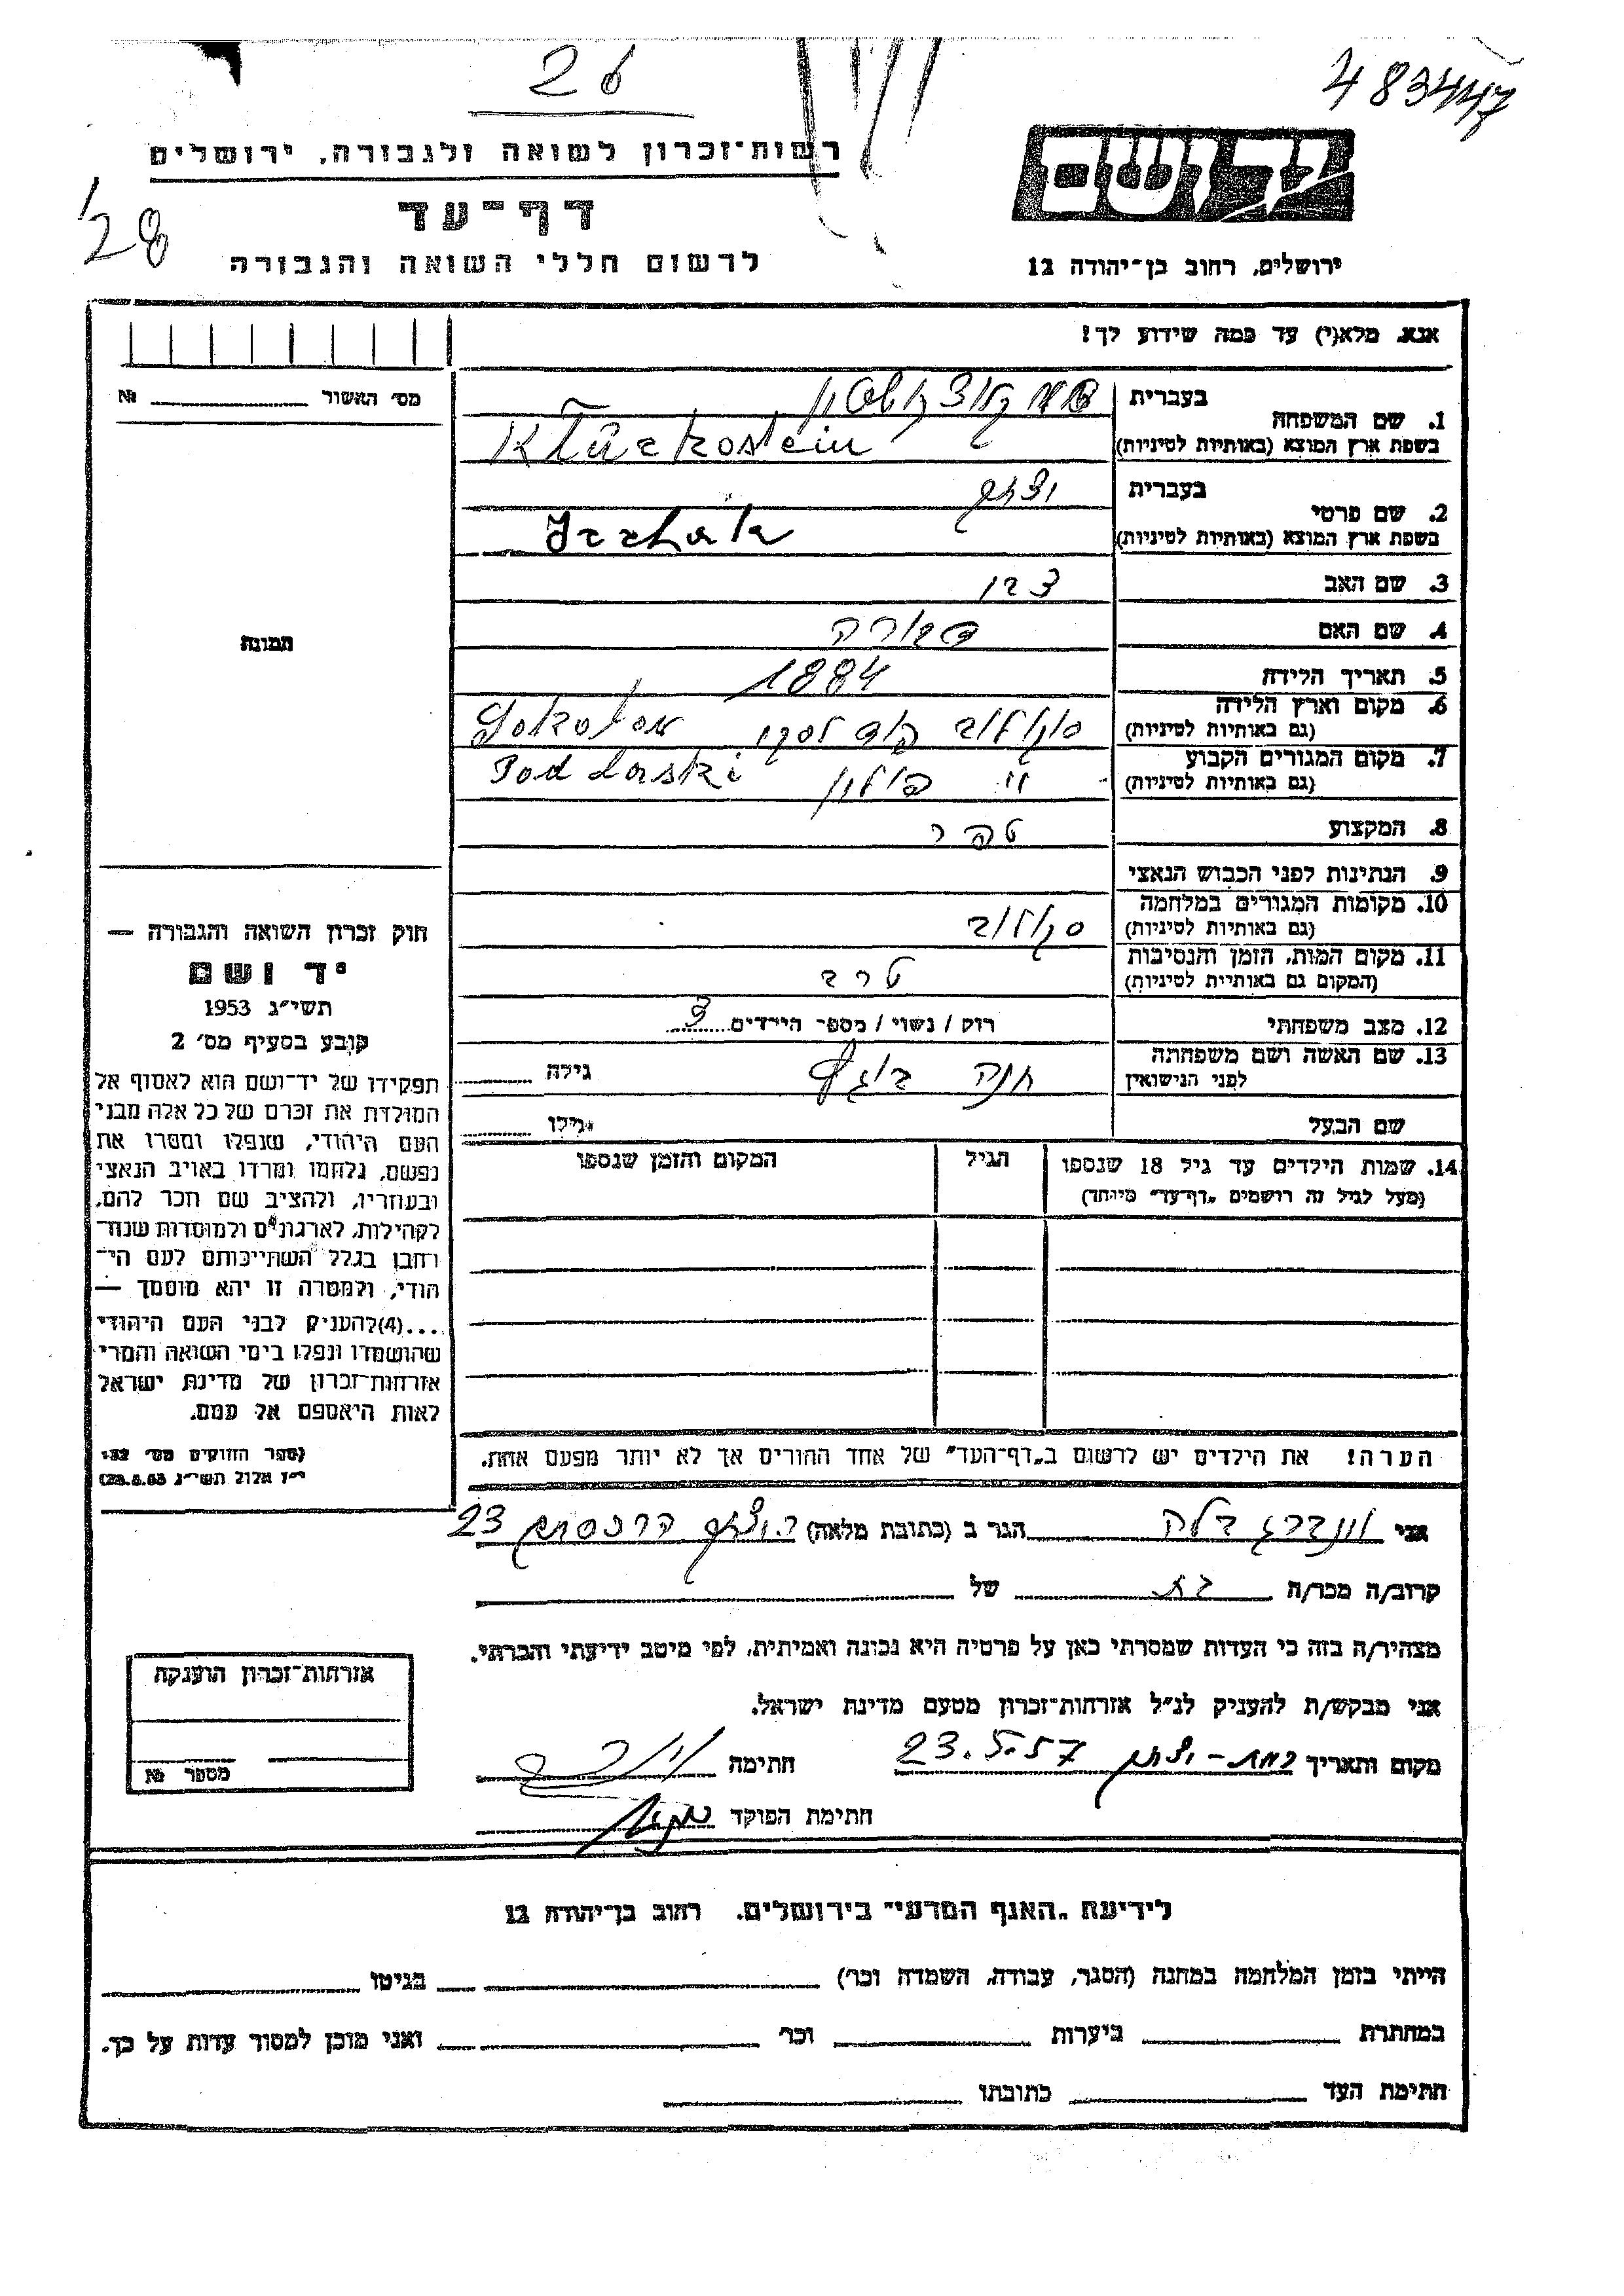 26
483447
רשות־זכרון לשואה ולגבורה, ירושלים
יד ושם
128
דף־עד
לרשום חללי השואה והגבורה
ירושלים, רחוב בן־יהודה 12
אנא, מלא(י) עד כמה שידוע לך!
מס׳ האשור № 
1. שם המשפחה
בעברית
בשפת ארץ המוצא (באותיות לטיניות)
2. שם פרטי
בעברית יצחק
בשפת ארץ המוצא (באותיות לטיניות) Jzchak
3. שם האב צבי
4. שם האם דבורה
5. תאריך הלידה 1884
6. מקום וארץ הלידה סוקולוב פודלסקי Sokolow
(גם באותיות לטיניות)
7. מקום המגורים הקבוע פולין Podlaski
(גם באותיות לטיניות)
8. המקצוע
9. הנתינות לפני הכבוש הנאצי
10. מקומות המגורים במלחמה סוקולוב
(גם באותיות לטיניות)
11. מקום המות, הזמן והנסיבות
(המקום גם באותיית לטיניות)
12. מצב משפחתי רוק / נשוי / מספר הילדים
13. שם האשה ושם משפחתה חנה גילה
לפני הנישואין
שם הבעל גילו
14. שמות הילדים עד גיל 18 שנספו הגיל המקום והזמן שנספו
(מעל לגיל זה רושמים „דף־עד״ מיוחד)
הערה! את הילדים יש לרשום ב„דף־העד״ של אחד ההורים אך לא יותר מפעם אחת.
תמונה
חוק זכרון השואה והגבורה —
יד ושם
תשי״ג 1953
קובע בסעיף מס׳ 2
תפקידו של יד־ושם הוא לאסוף אל
המולדת את זכרם של כל אלה מבני
העם היהודי, שנפלו ומסרו את
נפשם, נלחמו ומרדו באויב הנאצי
ובעוזריו, ולהציב שם וזכר להם,
לקהילות, לארגונים ולמוסדות שנח־
רחבו בגלל השתייכותם לעם הי־
הודי, ולמטרה זו יהא מוסמך —
...(4)להעניק לבני העם היהודי
שהושמדו ונפלו בימי השואה והמרי
אזרחות־זכרון של מדינת ישראל
לאות היאספם אל עמם.
(ספר החוקים מס׳ 132
י״ז אלול תשי״ג 28.8.53)
אני הגר ב (כתובת מלאה) 23
קרוב/ה מכר/ה בת של
מצהיר/ה בזה כי העדות שמסרתי כאן על פרטיה היא נכונה ואמיתית, לפי מיטב ידיעתי והכרתי.
אני מבקש/ת להעניק לנ״ל אזרחות־זכרון מטעם מדינת ישראל.
מקום ותאריך רמת-יצחק 23.5.57 חתימה
חתימת הפוקד
אזרחות־זכרון הוענקה
מספר №
לידיעת „האגף המדעי״ בירושלים, רחוב בן־יהודה 12
הייתי בזמן המלחמה במחנה (הסגר, עבודה, השמדה וכר׳) בגיטו
במחתרת ביערות וכר׳ ואני מוכן למסור עדות על כך.
חתימת העד כתובתו